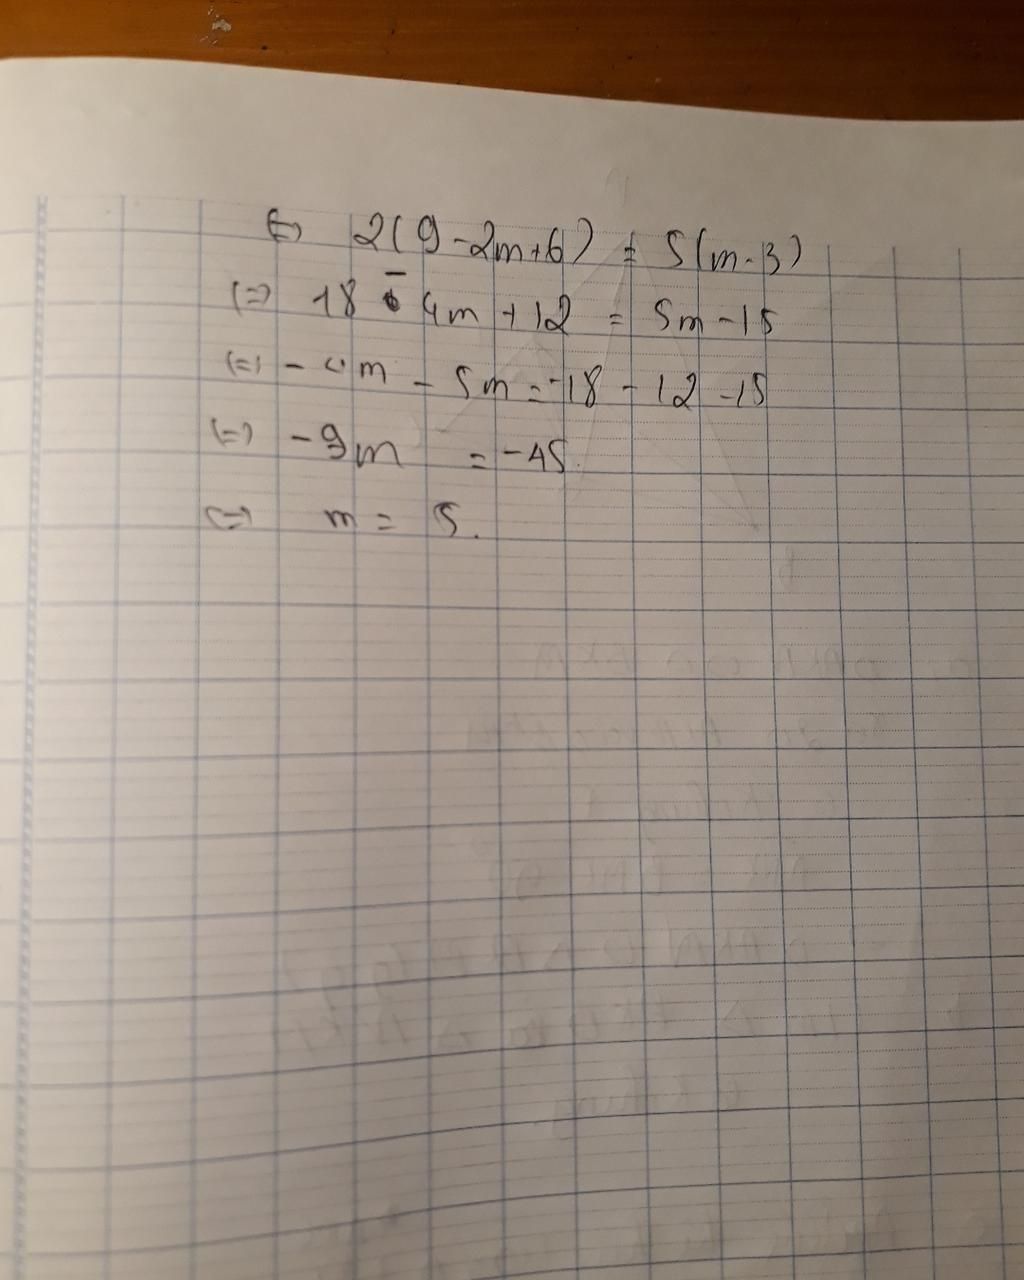 ⇔ 2(9-2m+6) = 5(m-3)
⇔ 18 - 4m + 12 = 5m - 15
⇔ - 4m - 5m = -18 - 12 - 15
⇔ - 9m = - 45.
⇔ m = 5.